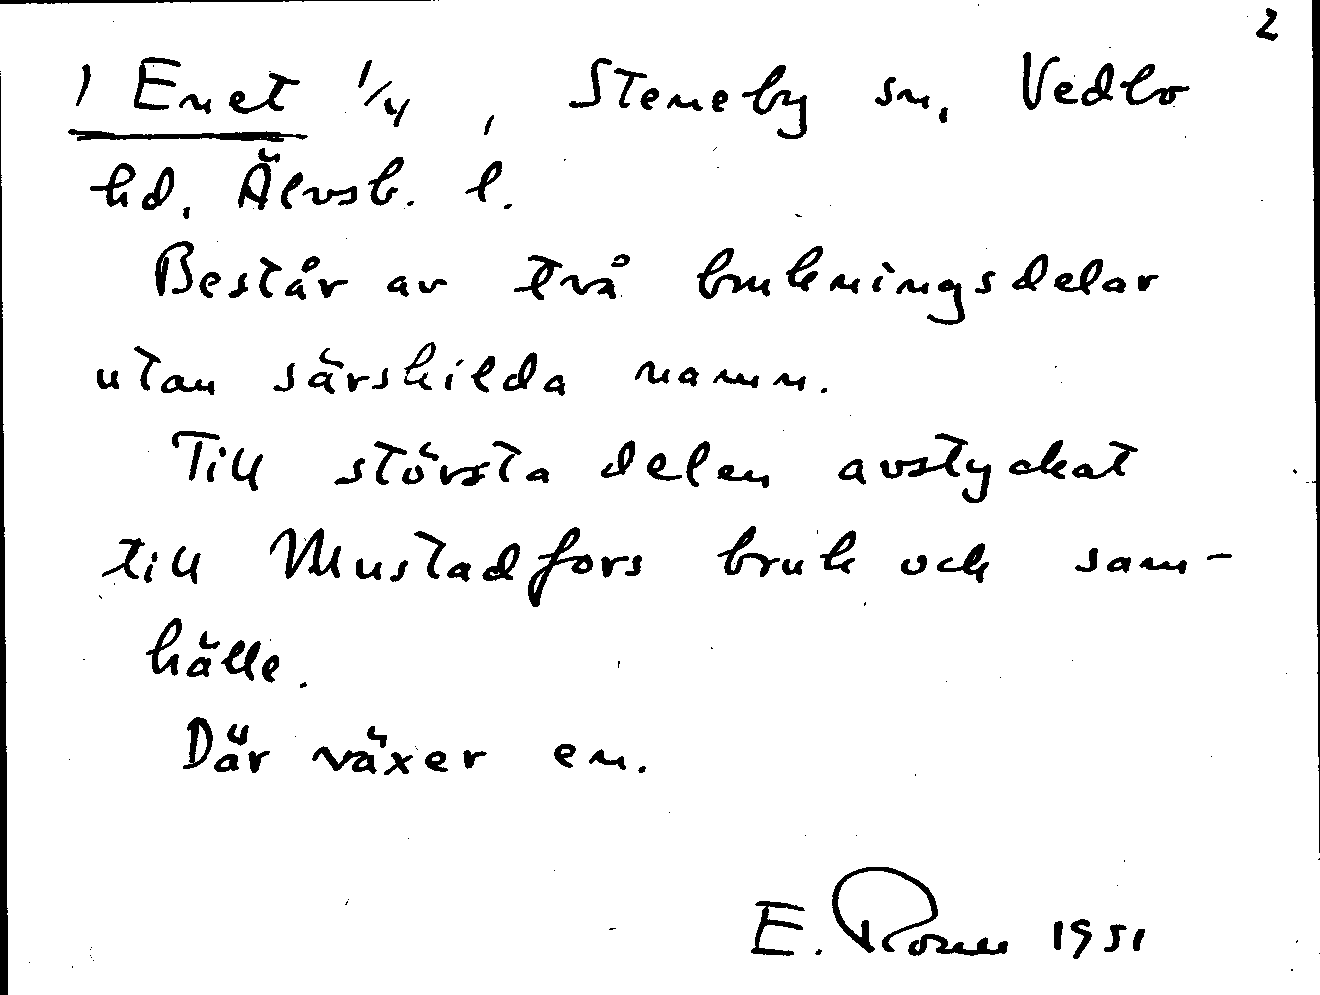 2
1 Enet 1/4, Steneby sn, Vedbo
hd, Älvsb. l.
Består av två brukningsdelar
utan särskilda namn.
Till största delen avstyckat
till Mustadfors bruk och sam-
hälle.
Där växer en.
E. 1951